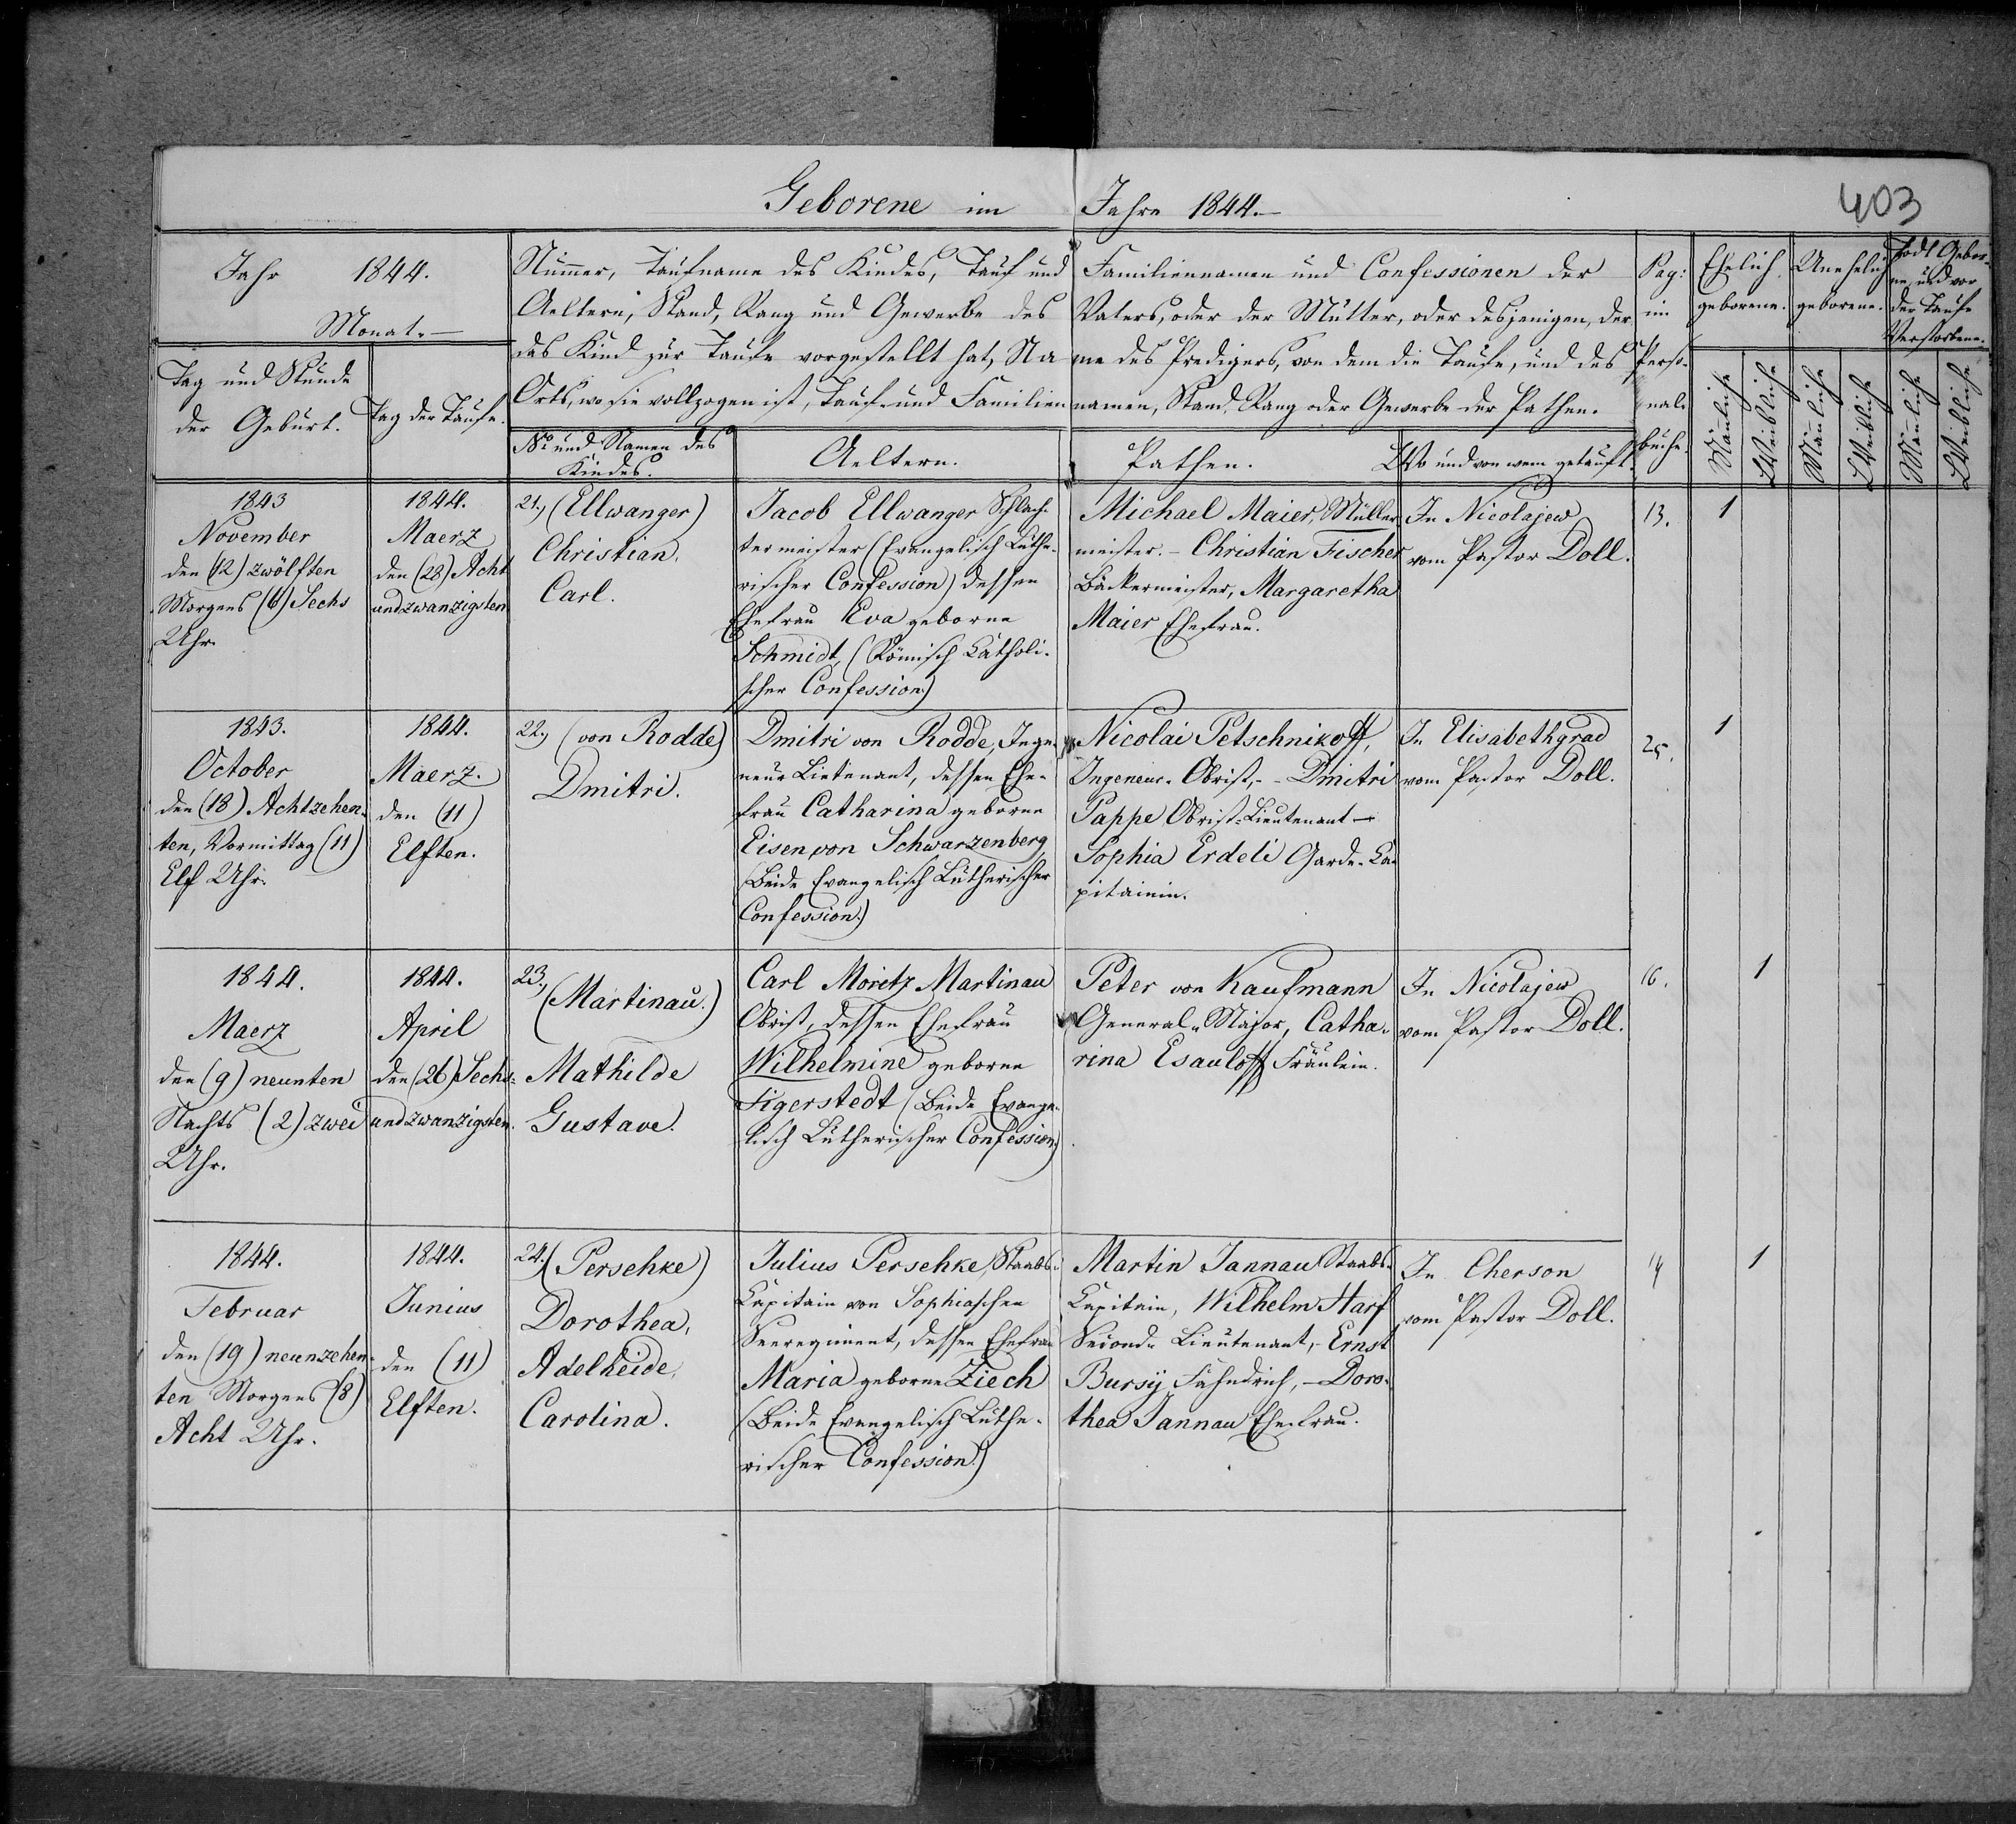 Geborene im Jahre 1844.—
403
Jahr 1844.
Monat.—
Tag und Stunde
der Geburt.
Tag der Taufe.
Nummer, Taufname des Kindes, Tauf und Familiennamen und Confessionen der
Aeltern, Stand, Rang und Gewerbe des Vaters, oder der Mutter, oder desjenigen, der
das Kind zur Taufe vorgestellt hat, Name des Predigers, von dem die Taufe, und des
Orts, wo sie vollzogen ist, Tauf- und Familiennamen, Stand, Rang oder Gewerbe der Pathen.
No und Namen des
Kindes.
Aeltern.
Pathen.
Wo und von wem getauft.
Pag:
im
Perso-
nal-
buche.
Ehelich
geborene.
Unehelich
geborene.
Todt Gebor-
ne, und vor
der Taufe
Verstorbene.
Mänliche
Weibliche
Mänliche
Weibliche
Mänliche
Weibliche
1843
November
den (12) zwölften
Morgens (6) Sechs
Uhr.
1844.
Maerz
den (28) Acht
und zwanzigsten
21.) (Ellwanger)
Christian,
Carl.
Jacob Ellwanger Schlach-
termeister (Evangelisch Luthe-
rischer Confession) dessen
Ehefrau Eva geborne
Schmidt, (Römisch Katholi-
scher Confession)
Michael Maier, Müller
meister. - Christian Fischer
Bäckermeister, Margaretha
Maier Ehefrau.
In Nicolajew
vom Pastor Doll.
13.
1
1843.
October
den (18) Achtzehen-
ten, Vormittag (11)
Elf Uhr.
1844.
Maerz.
den (11)
Elften.
22.) (von Rodde)
Dmitri.
Dmitri von Rodde, Inge-
neur Lietenant, dessen Ehe-
frau Catharina geborne
Eisen von Schwarzenberg
(Beide Evangelisch Lutherischer
Confession.)
Nicolai Petschnikoff,
Ingeneur-Obrist, - Dmitri
Pappe Obrist-Lieutenant —
Sophia Erdeli Garde-Ka-
pitainin.
In Elisabethgrad
vom Pastor Doll.
25.
1
1844.
Maerz
den (9) neunten
Nachts (2) zwei
Uhr.
1844.
April
den (26) Sechs-
und zwanzigsten.
23.)
(Martinau.)
Mathilde
Gustave.
Carl Moritz Martinau
Obrist, dessen Ehefrau
Wilhelmine geborne
Figerstedt (Beide Evange-
lisch Lutherischer Confession)
Peter von Kaufmann
General-Major, Catha-
rina Esauloff Fräulein.
In Nicolajew
vom Pastor Doll.
16.
1
1844.
Februar
den (19) neunzehen-
ten Morgens (8)
Acht Uhr.
1844.
Junius
den (11)
Elften.
24.) (Persehke)
Dorothea,
Adelheide,
Carolina.
Julius Persehke, Staabs-
Kapitain von Sophiaschen
Seeregiment, dessen Ehefrau
Maria geborne Ziech
(Beide Evangelisch Luthe-
rischer Confession.)
Martin Jannau, Staabs-
Kapitain, Wilhelm Harf
Second-Lieutenant, - Ernst
Bursy Fähndrich, - Doro-
thea Jannau Ehefrau.
In Cherson
vom Pastor Doll.
14
1